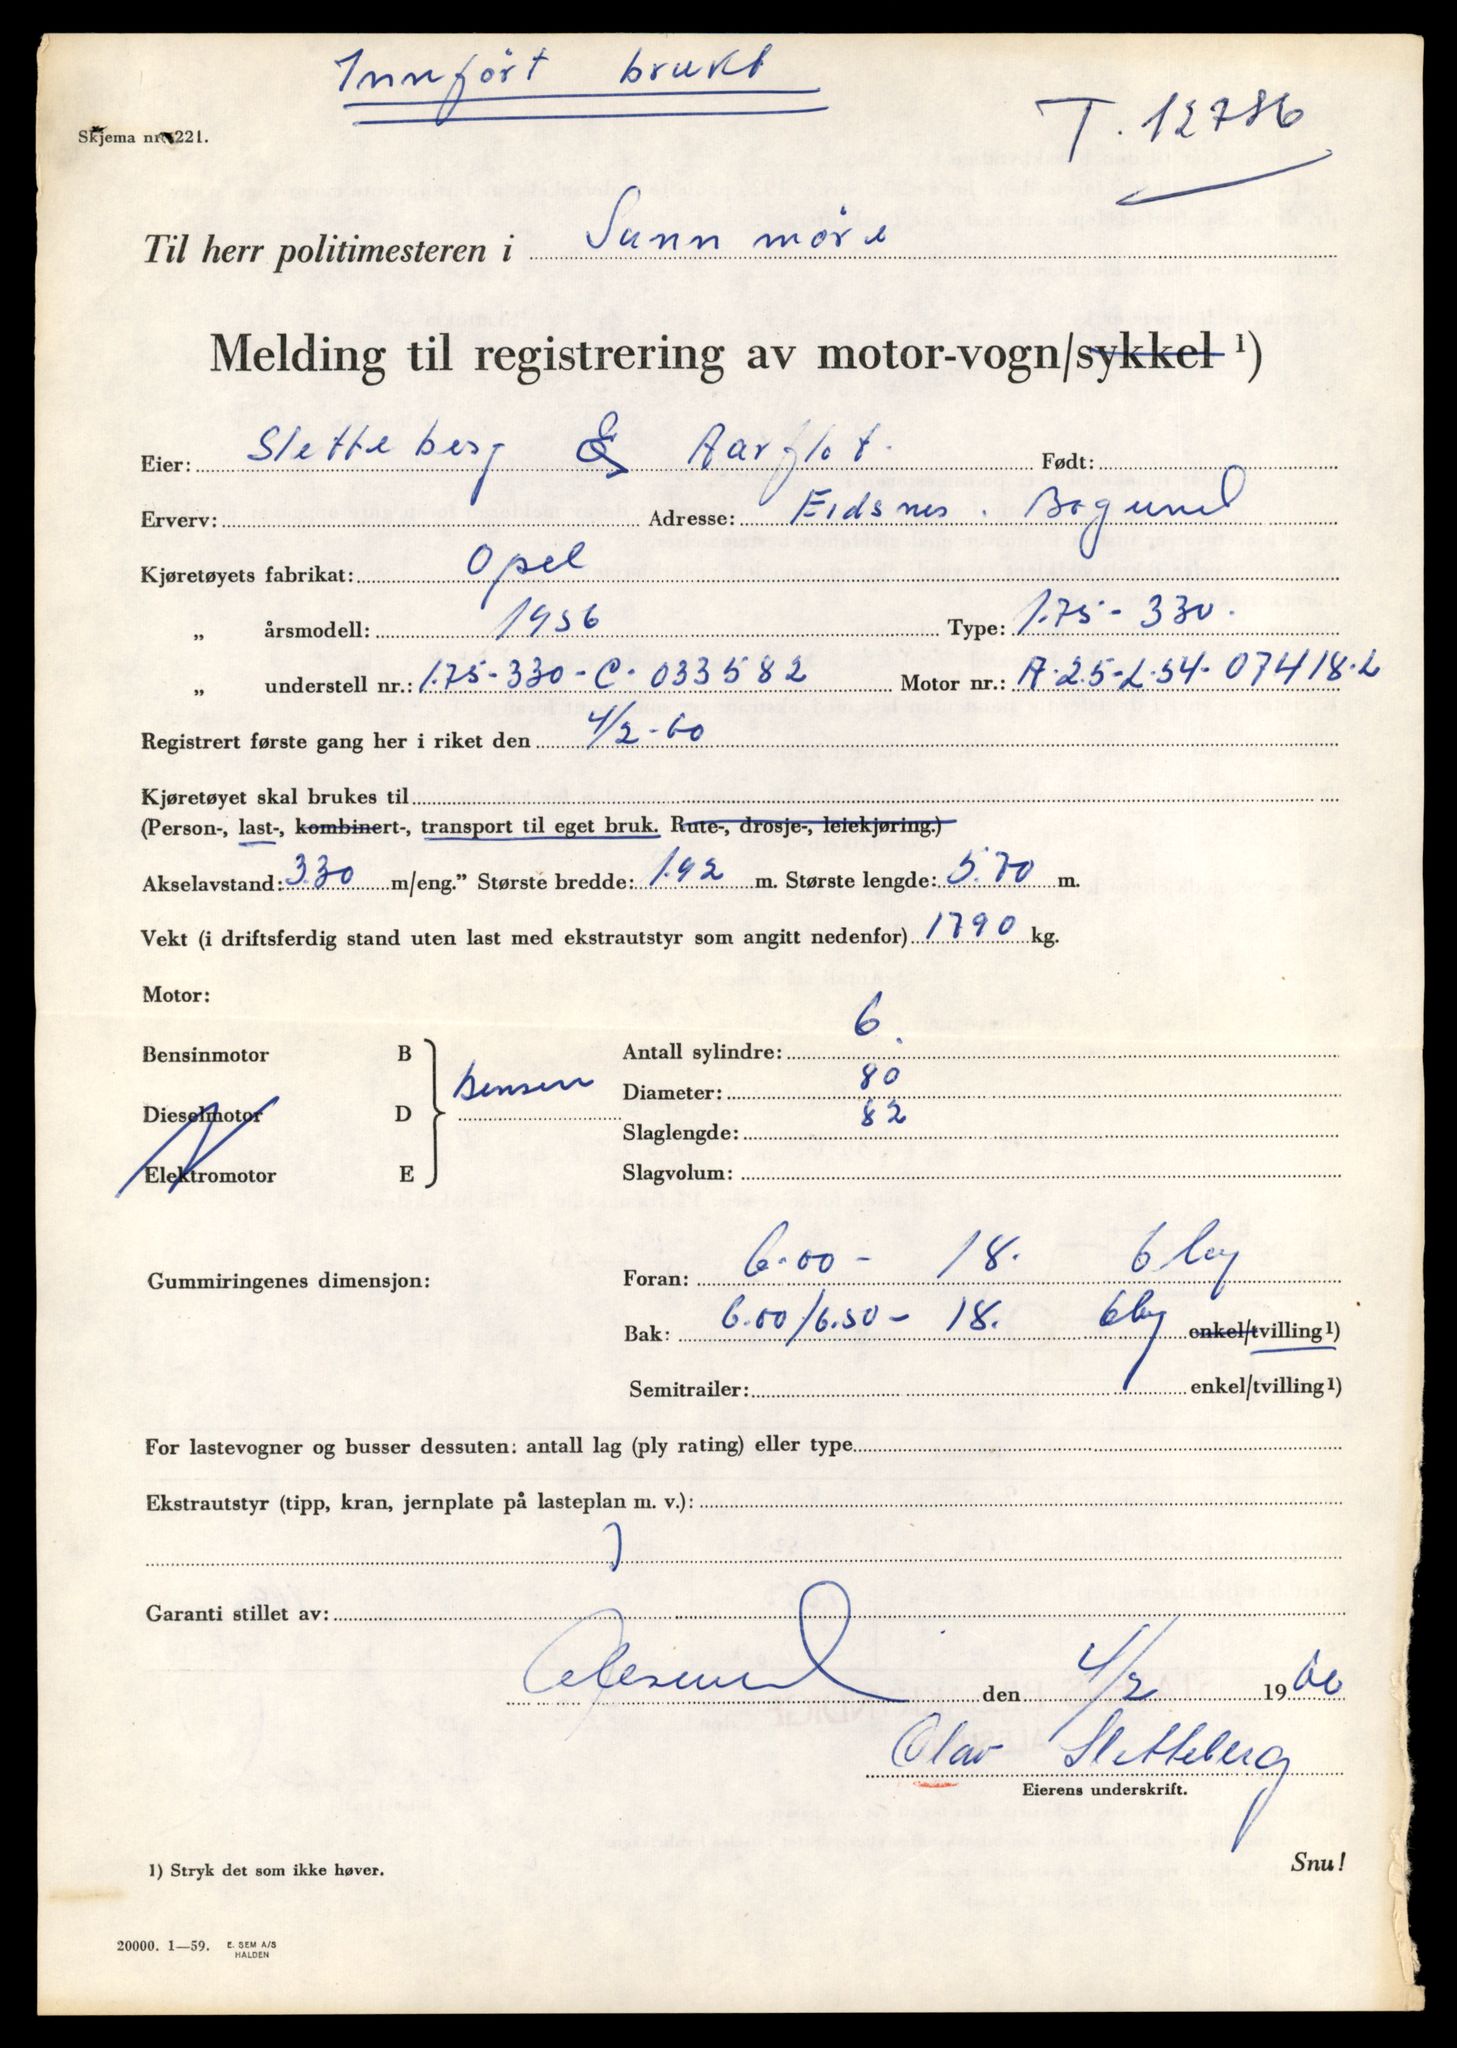 Innført brukt
T. 12786
Skjema nr. 221.
Til herr politimesteren i Sunnmøre
Melding til registrering av motor-vogn/sykkel 1)
Eier: Sletteberg & Aarflot. Født:
Erverv: Adresse: Eidsnes. Bogund
Kjøretøyets fabrikat: Opel
„ årsmodell: 1956 Type: 1.75-330.
„ understell nr.: 1.75-330-C-033582 Motor nr.: A-2.5-L-54-07418-L
Registrert første gang her i riket den 4/2-60
Kjøretøyet skal brukes til
(Person-, last-, kombinert-, transport til eget bruk. Rute-, drosje-, leiekjøring.)
Akselavstand: 3.30 m/eng.” Største bredde: 1.92 m. Største lengde: 5.70 m.
Vekt (i driftsferdig stand uten last med ekstrautstyr som angitt nedenfor) 1790 kg.
Motor:
Bensinmotor B Antall sylindre: 6.
bensin Diameter: 80
Dieselmotor D Slaglengde: 82
Elektromotor E Slagvolum:
Gummiringenes dimensjon: Foran: 6.00 - 18. 6 lag
Bak: 6.00/6.50 - 18. 6 lag enkel/tvilling1)
Semitrailer: enkel/tvilling1)
For lastevogner og busser dessuten: antall lag (ply rating) eller type
Ekstrautstyr (tipp, kran, jernplate på lasteplan m. v.):
Garanti stillet av:
Aalesund den 4/2 1960
Olav Sletteberg
Eierens underskrift.
1) Stryk det som ikke høver.
Snu!
20000. 1—59. E. SEM A/S
HALDEN